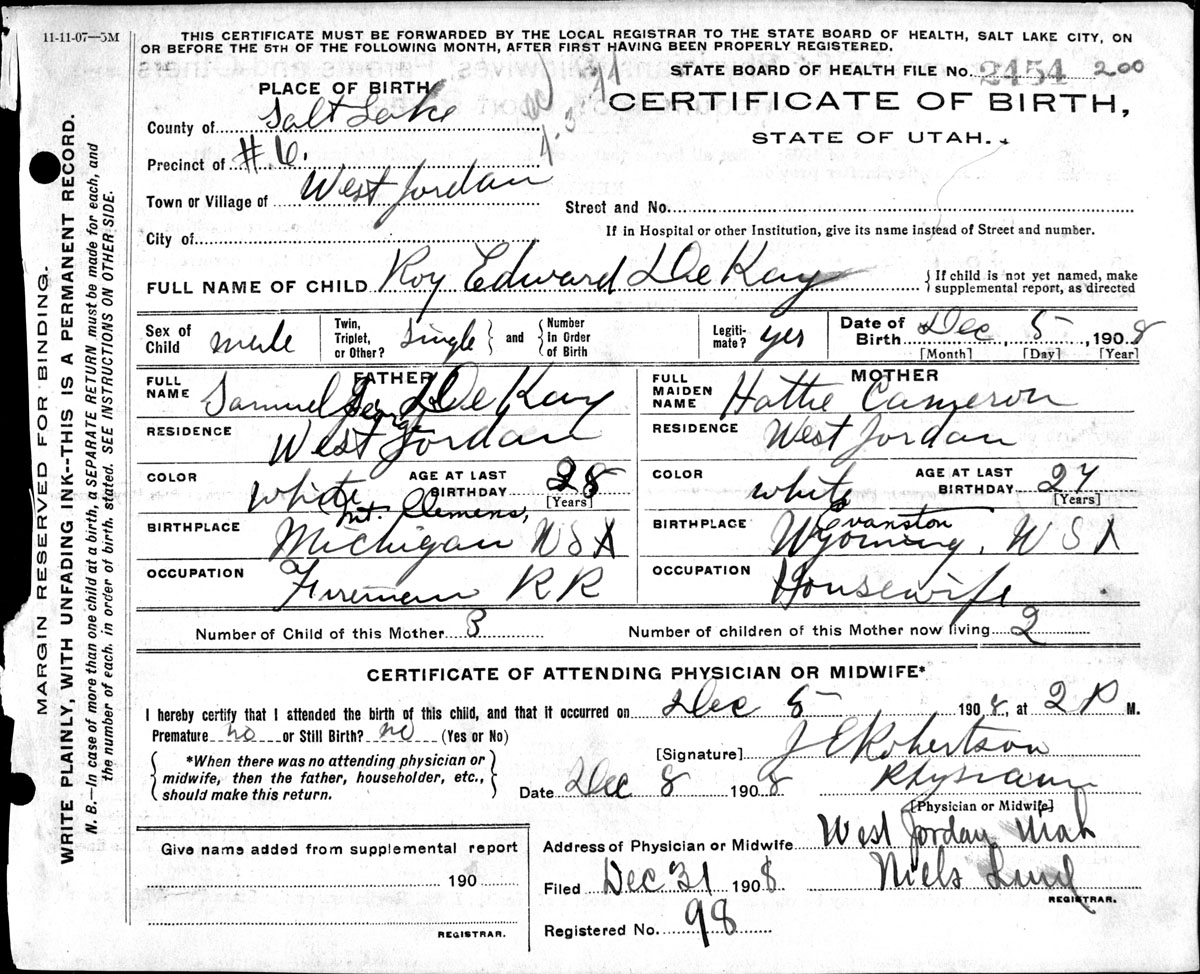 11-11-07—5M
THIS CERTIFICATE MUST BE FORWARDED BY THE LOCAL REGISTRAR TO THE STATE BOARD OF HEALTH, SALT LAKE CITY, ON
OR BEFORE THE 5TH OF THE FOLLOWING MONTH, AFTER FIRST HAVING BEEN PROPERLY REGISTERED.
STATE BOARD OF HEALTH FILE No. 2454 200
CERTIFICATE OF BIRTH,
STATE OF UTAH.
PLACE OF BIRTH
County of Salt Lake
Precinct of #6.
Town or Village of West Jordan
Street and No.
If in Hospital or other Institution, give its name instead of Street and number.
City of
FULL NAME OF CHILD Roy Edward De Kay
If child is not yet named, make
supplemental report, as directed
Sex of Child male
Twin, Triplet, or Other? Single and Number In Order of Birth
Legitimate? yes
Date of Birth Dec 5, 1908
[Month] [Day] [Year]
FATHER
FULL NAME Samuel George De Kay
RESIDENCE West Jordan
COLOR white
AGE AT LAST BIRTHDAY 28
[Years]
BIRTHPLACE Mt. Clemens,
Michigan USA
OCCUPATION Fireman RR
MOTHER
FULL MAIDEN NAME Hattie Cameron
RESIDENCE West Jordan
COLOR white
AGE AT LAST BIRTHDAY 27
[Years]
BIRTHPLACE Evanston
Wyoming, USA
OCCUPATION Housewife
Number of Child of this Mother 3
Number of children of this Mother now living 2
CERTIFICATE OF ATTENDING PHYSICIAN OR MIDWIFE*
I hereby certify that I attended the birth of this child, and that it occurred on Dec 5 1908, at 2 P M.
Premature no or Still Birth? no (Yes or No)
*When there was no attending physician or
midwife, then the father, householder, etc.,
should make this return.
[Signature] J E Robertson
Date Dec 8 1908
Physician
[Physician or Midwife]
Address of Physician or Midwife West Jordan Utah
Filed Dec 31 1908
Niels Lind
REGISTRAR.
Registered No. 98
Give name added from supplemental report
190
REGISTRAR.
MARGIN RESERVED FOR BINDING.
WRITE PLAINLY, WITH UNFADING INK--THIS IS A PERMANENT RECORD.
N. B.—In case of more than one child at a birth, a SEPARATE RETURN must be made for each, and
the number of each. in order of birth. stated. SEE INSTRUCTIONS ON OTHER SIDE.